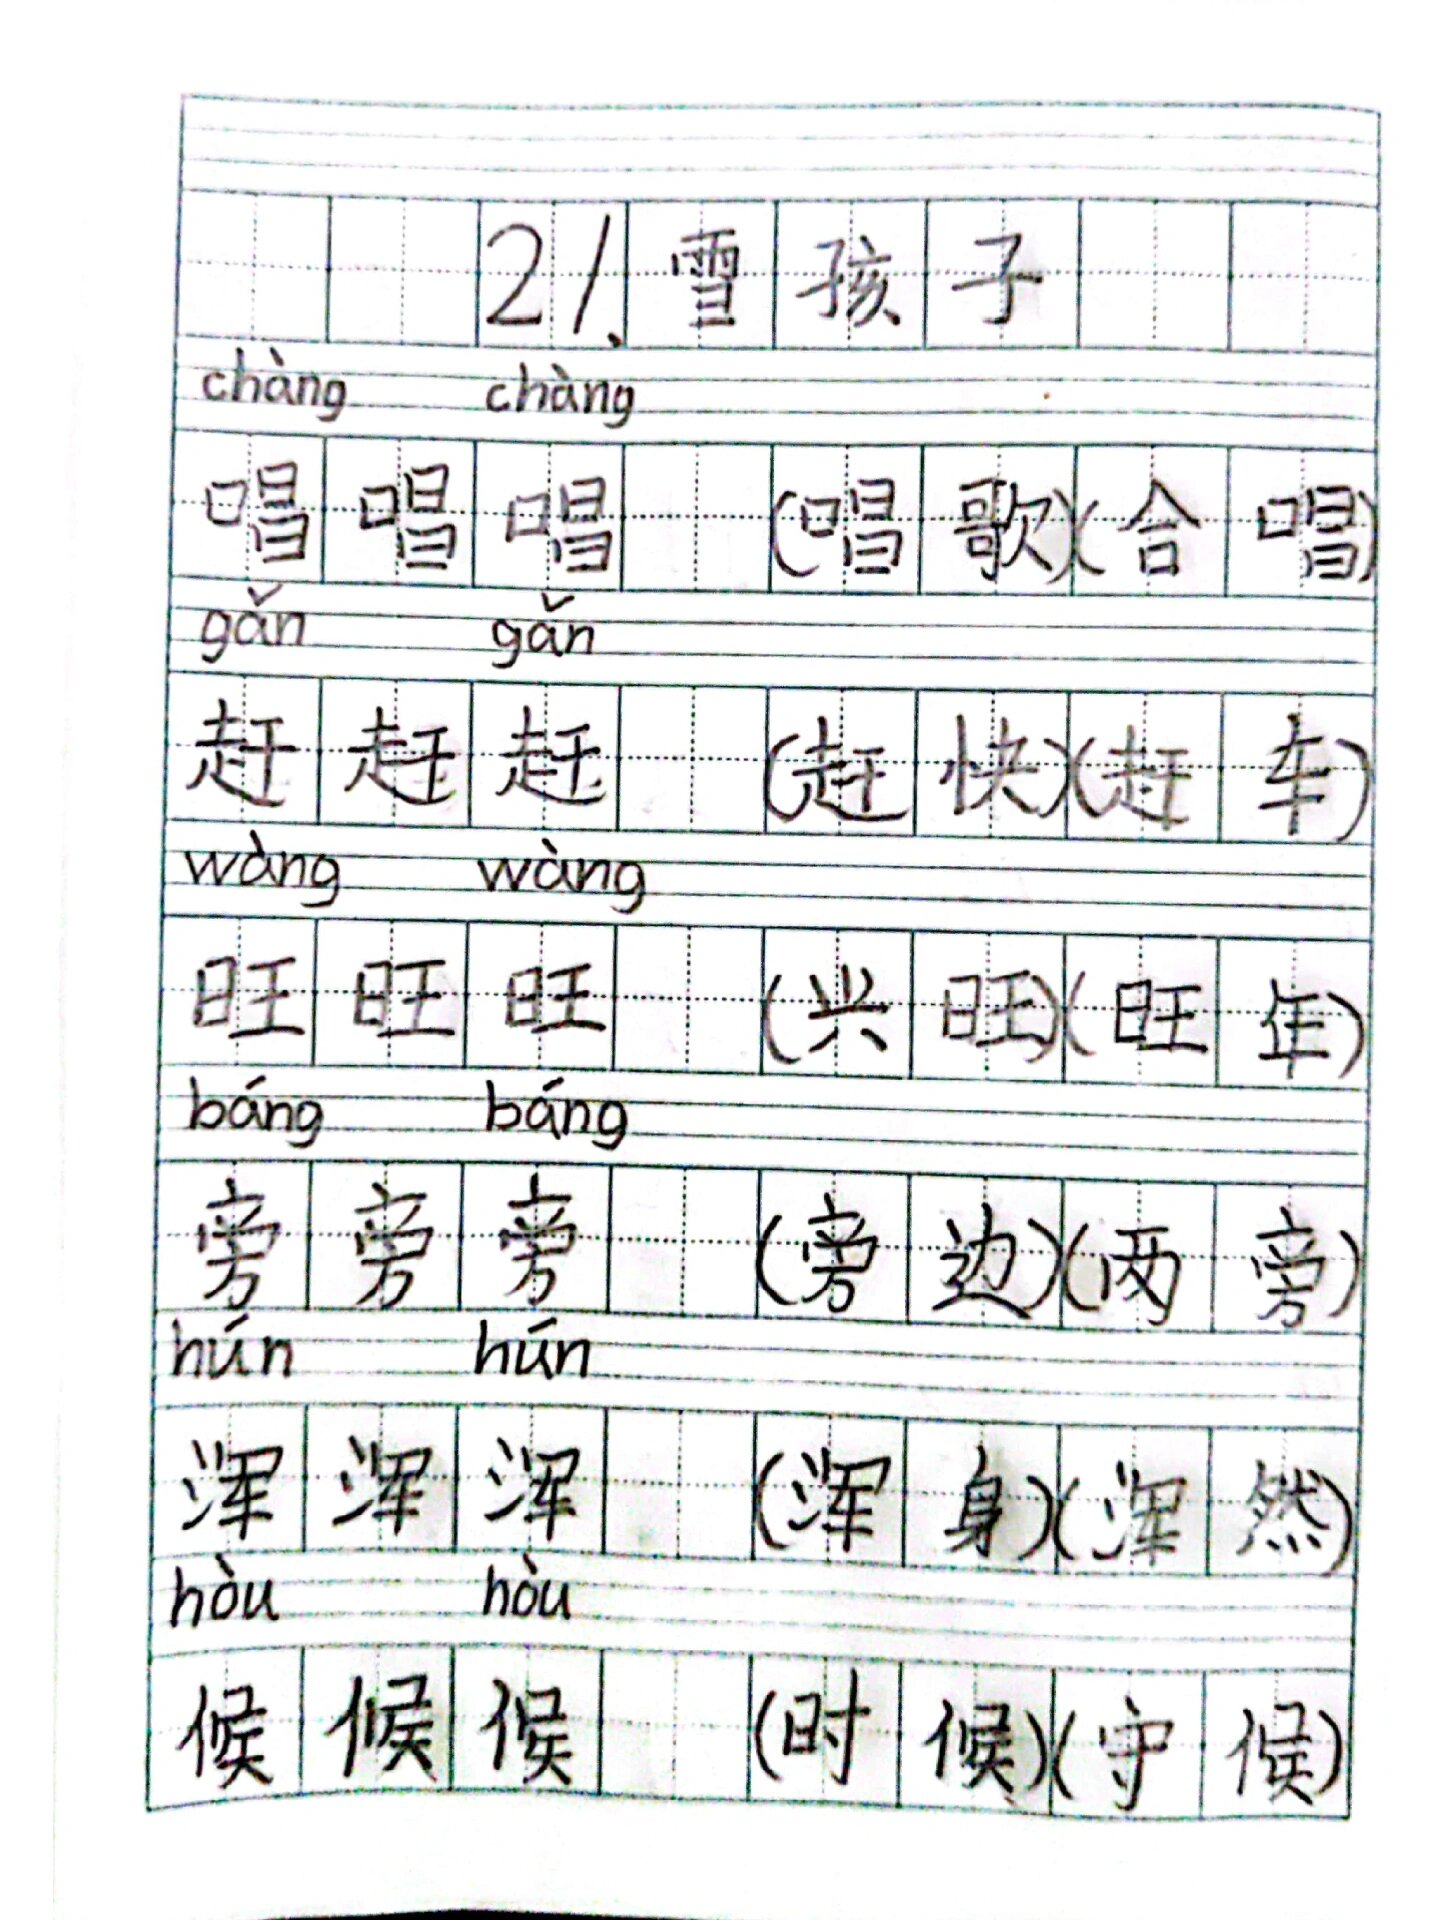 21、雪孩子
chàng chàng
唱唱唱 (唱歌)(合唱)
gǎn gǎn
赶赶赶 (赶快)(赶车)
wàng wàng
旺旺旺 (兴旺)(旺年)
báng báng
旁旁旁 (旁边)(两旁)
hún hún
浑浑浑 (浑身)(浑然)
hòu hòu
候候候 (时候)(守候)